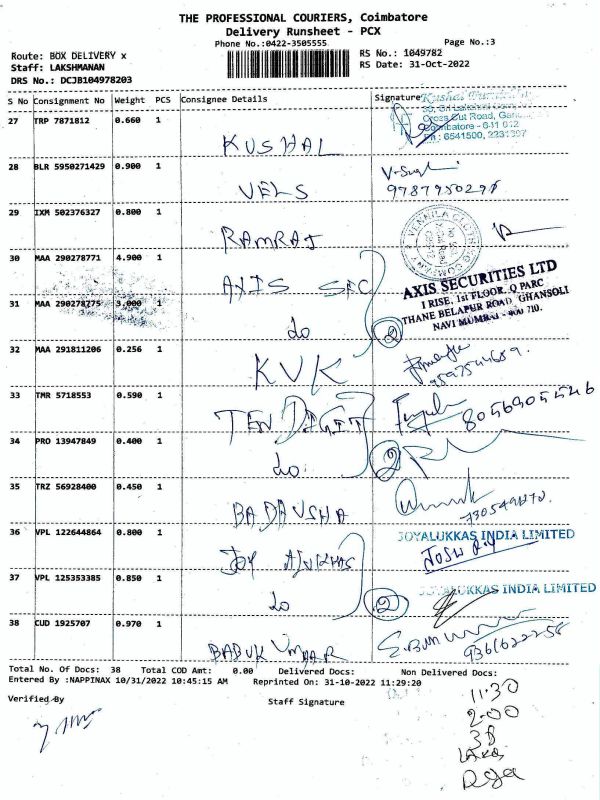 THE PROFESSIONAL COURIERS, Coimbatore
Delivery Runsheet - PCX
Phone No.:0422-3505555
Page No.:3
Route: BOX DELIVERY x
Staff: LAKSHMANAN
DRS No.: DCJB104978203
RS No.: 1049782
RS Date: 31-Oct-2022
S No Consignment No Weight PCS Consignee Details Signature
27 TRP 7871812 0.660 1 KUSHAL
28 BLR 5950271429 0.900 1 VELS
29 IXM 502376327 0.800 1 RAMRAJ
30 MAA 290278771 4.900 1 AXIS SEC
AXIS SECURITIES LTD
I RISE, 1st FLOOR, Q PARC
THANE BELAPUR ROAD, GHANSOLI
NAVI MUMBAI - 400 710.
31 MAA 290278775 3.000 1 do 2
32 MAA 291811206 0.256 1 KVK
33 TMR 5718553 0.590 1 TEN DIGIT 8056905546
34 PRO 13947849 0.400 1 do 2
35 TRZ 56928400 0.450 1 BADAVSHA
JOYALUKKAS INDIA LIMITED
36 VPL 122644864 0.800 1 JOY
JOYALUKKAS INDIA LIMITED
37 VPL 125353385 0.850 1 do 2
38 CUD 1925707 0.970 1
Total No. Of Docs: 38 Total COD Amt: 0.00 Delivered Docs: Non Delivered Docs:
Entered By :NAPPINAX 10/31/2022 10:45:15 AM Reprinted On: 31-10-2022 11:29:20
Verified By
Staff Signature
11:30
2.00
38